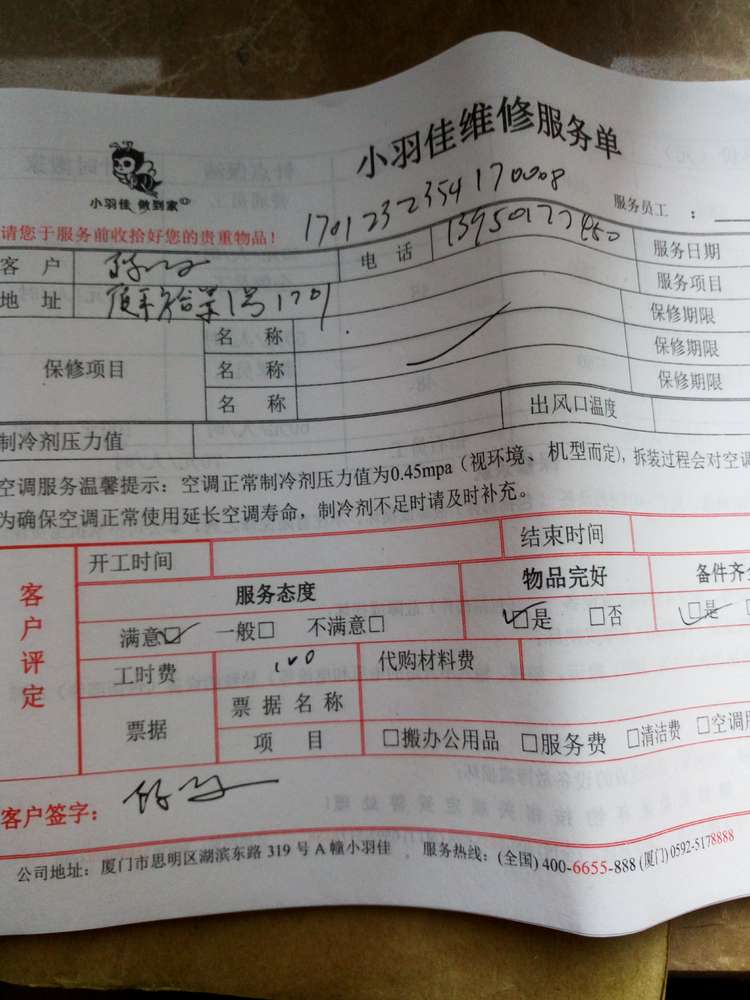 小羽佳维修服务单
小羽佳 做到家
1701232354170008
服务员工 ：
请您于服务前收拾好您的贵重物品！
客 户 电 话 服务日期
地 址 1号1701 服务项目
保修项目
名 称 保修期限
名 称 保修期限
名 称 保修期限
制冷剂压力值 出风口温度
空调服务温馨提示：空调正常制冷剂压力值为0.45mpa（视环境、机型而定），拆装过程会对空调
为确保空调正常使用延长空调寿命，制冷剂不足时请及时补充。
客户评定
开工时间 结束时间
服务态度 物品完好 备件齐全
满意☑ 一般□ 不满意□ ☑是 □否 ☑是
工时费 100 代购材料费
票据 票据名称
项 目 □搬办公用品 □服务费 □清洁费 □空调服
客户签字：
公司地址：厦门市思明区湖滨东路 319 号 A 幢小羽佳 服务热线：(全国) 400-6655-888 (厦门) 0592-5178888